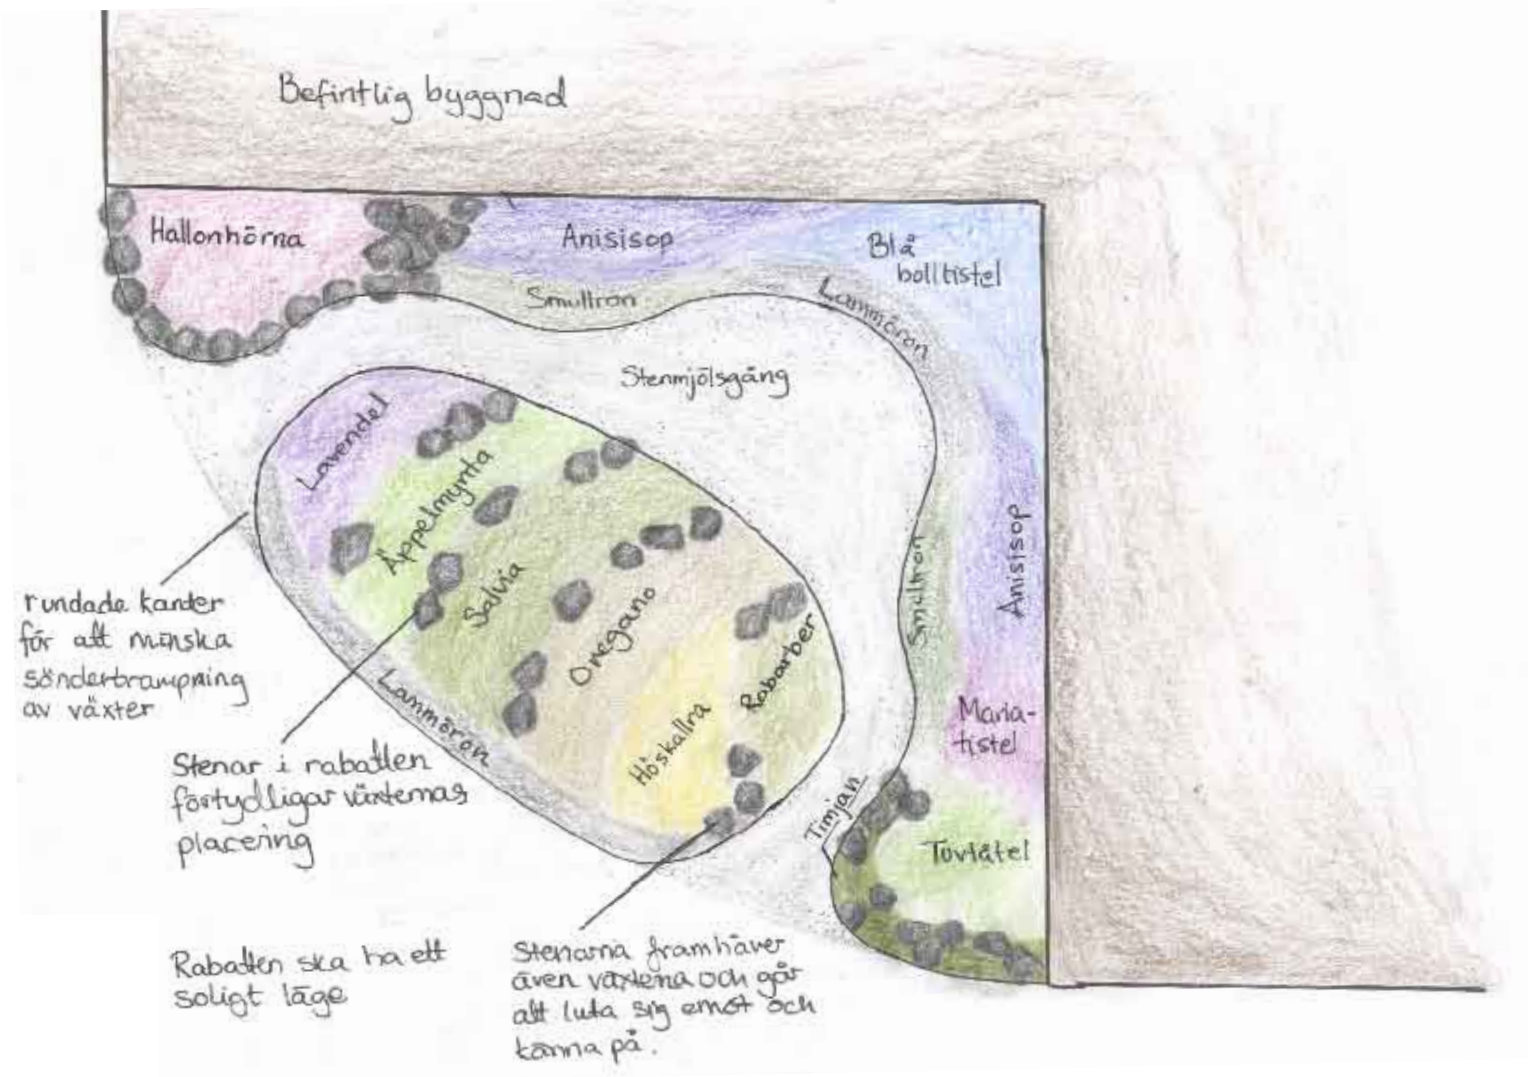 Befintlig byggnad
Hallonhörna
Anisisop
Blå
bolltistel
Smultron
Lammöron
Stenmjölsgång
Lavendel
Äppelmynta
Salvia
Oregano
Höskallra
Rabarber
Lammöron
Smultron
Anisisop
Maria-
tistel
Timjan
Tuvtåtel
rundade kanter
för att minska
söndertrampning
av växter
Stenar i rabatten
förtydligar växternas
placering
Rabatten ska ha ett
soligt läge
Stenarna framhäver
även växterna och går
att luta sig emot och
känna på.